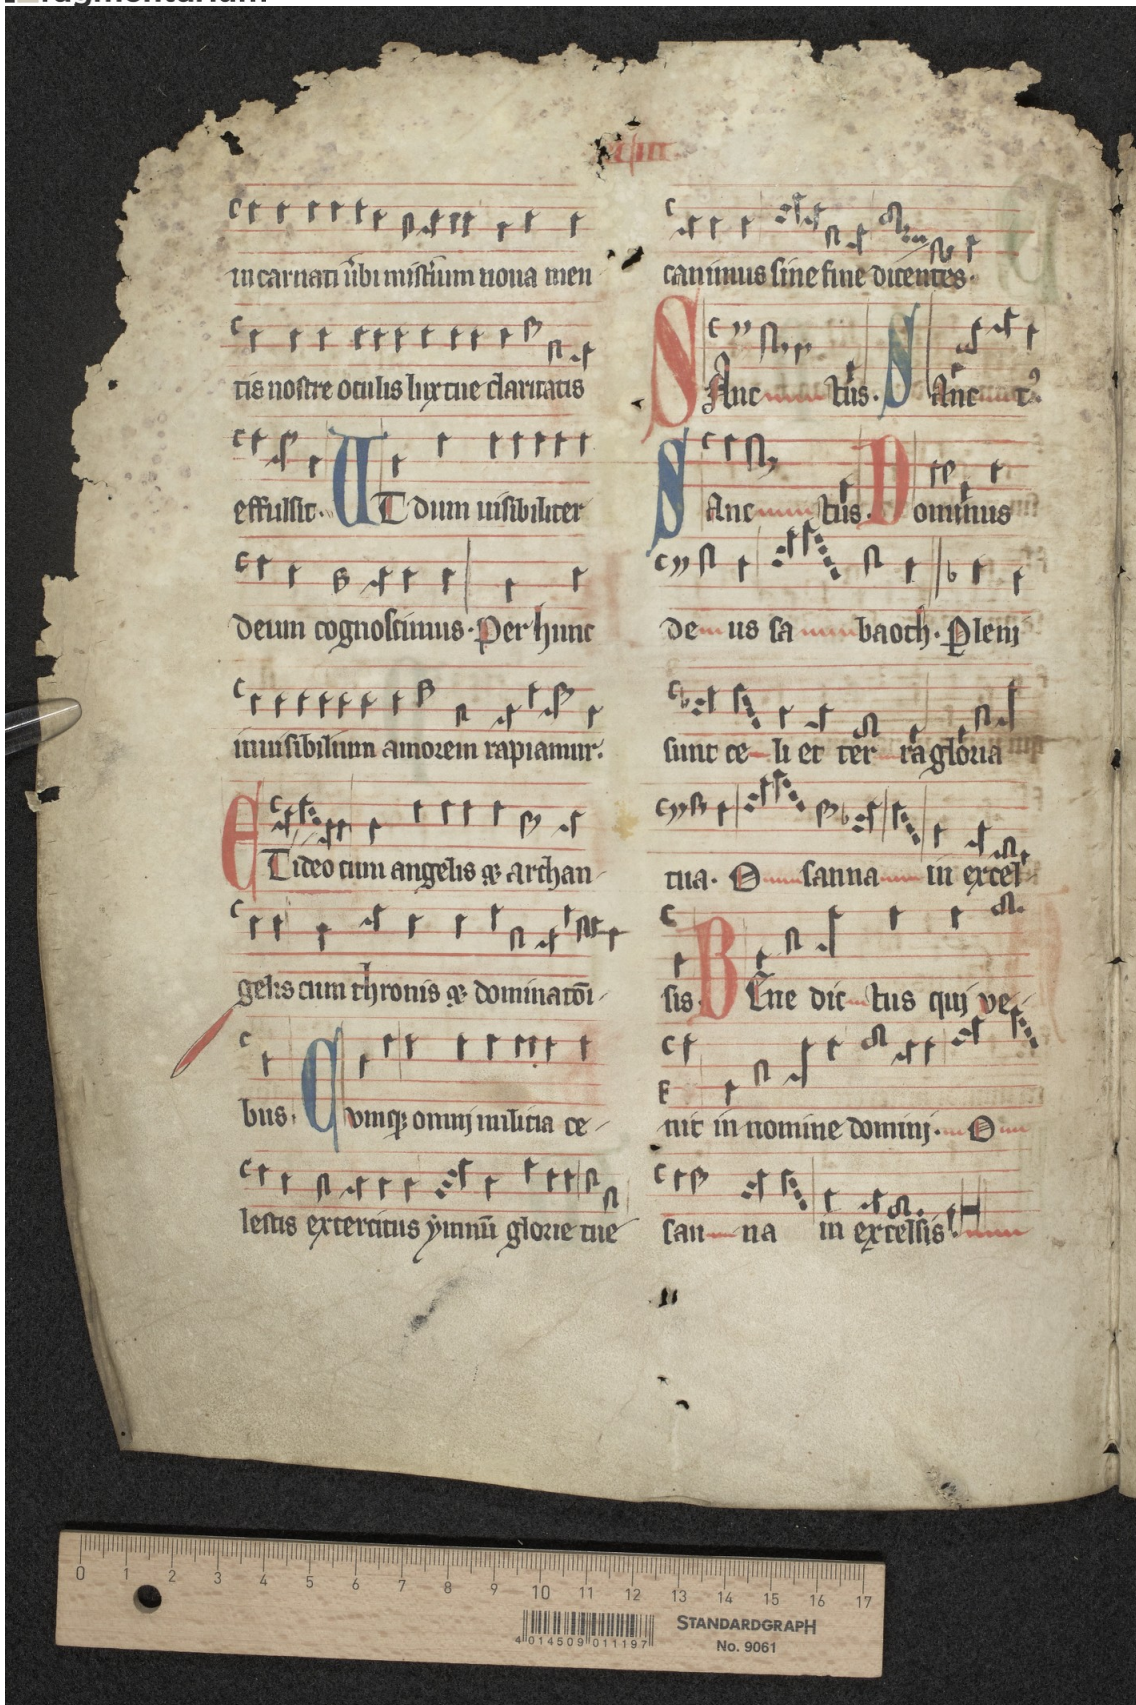 incarnati u̅bi mist̅ium noua men
tis nostre oculis lux tue claritatis
effulsit. UT dum uisibiliter
deum cognoscimus. Per hunc
inuisibilium amorem rapiamur.
ET ideo cum angelis ⁊ archan
gelis cum thronis ⁊ dominatõi
bus. Cvmq; omnj militia ce
lestis exercitus ẏmnũ glorie tue
canimus sine fine dicentes.
SAnc tus. SAnc tꝰ
SAnc tus. Dominus
de us sa baoth. Plenj
sunt ce li et ter ra gloria
tua. O sanna in excel
sis. BEne dic tus quj ve
nit in nomine dominj. O
san na in excelsis.
0 1 2 3 4 5 6 7 8 9 10 11 12 13 14 15 16 17
STANDARDGRAPH
4 014509 011197
No. 9061